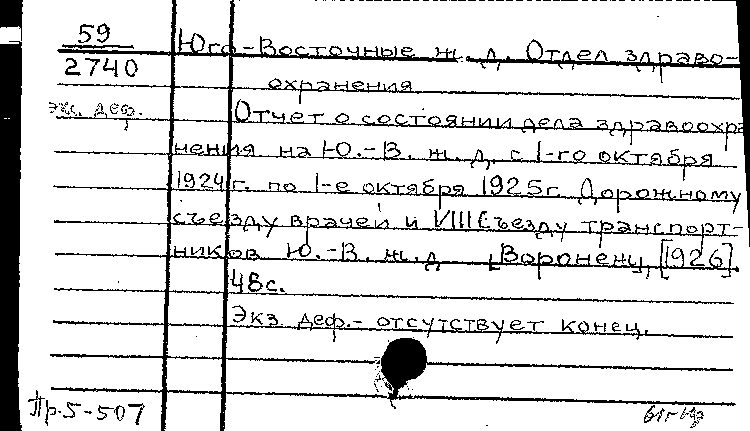 59
2740
Юго-Восточные ж. д. Отдел здраво-
охранения
экз. деф.
Отчет о состоянии дела здравоохра
нения на Ю.-В. ж. д. с 1-го октября
1924 г. по 1-е октября 1925 г. Дорожному
съезду врачей и VIII Съезду транспорт-
ников Ю.-В. ж. д. [Воронеж, [1926].
48 с.
Экз. деф.- отсутствует конец.
Пр.5-507